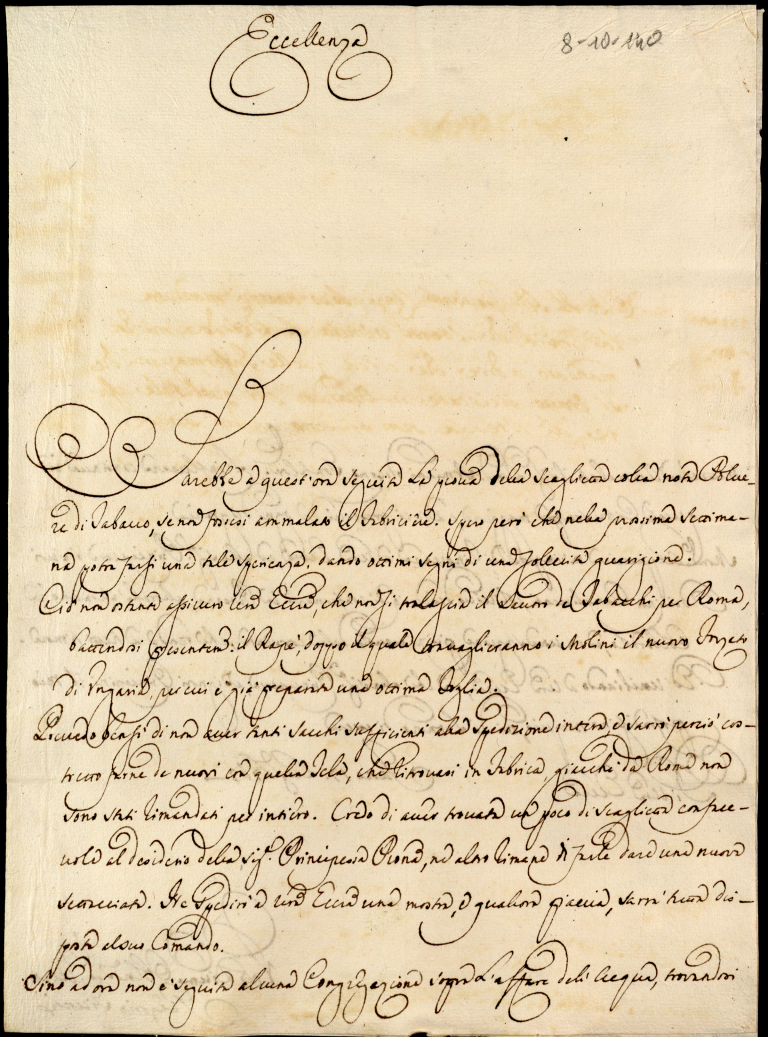 Eccellenza
8-10-140
Sarebbe a quest'ora seguita la prova della scaglietta colla nota Polve-
re di Tabacco, se non fossesi ammalato il Fabriciere. Spero però che nella prossima settima-
na potrà farsi una tale sperienza, dando ottimi segni di una sollecita guarigione.
Ciò non ostante assicuro Vra Eccza, che non si tralascia il lavoro de Tabacchi per Roma,
battendosi presentem: il Rapè, doppo il quale travaglieranno i Molini il nuovo
di Ungaria, per cui è già preparata una ottima foglia.
Prevedo bensì di non aver tanti sacchi sufficienti alla spedizione intera, e sarrò perciò cos-
tretto farne de nuovi con quella Tela, che ritrovasi in Fabrica, giacchè da Roma non
sono stati rimandati per intiero. Credo di aver trovata un poco di scaglietta conface-
vole al desiderio della Sigra Principessa Piona, nè altro rimane di farle dare una nuova
setacciata. Ne spedirò a Vra Eccza una mostra, e qualora piaccia, sarrà tutta dis-
posta al suo Comando.
Sino ad ora non è seguita alcuna Congregazione sopra l'affare dell'Acqua, trovandosi